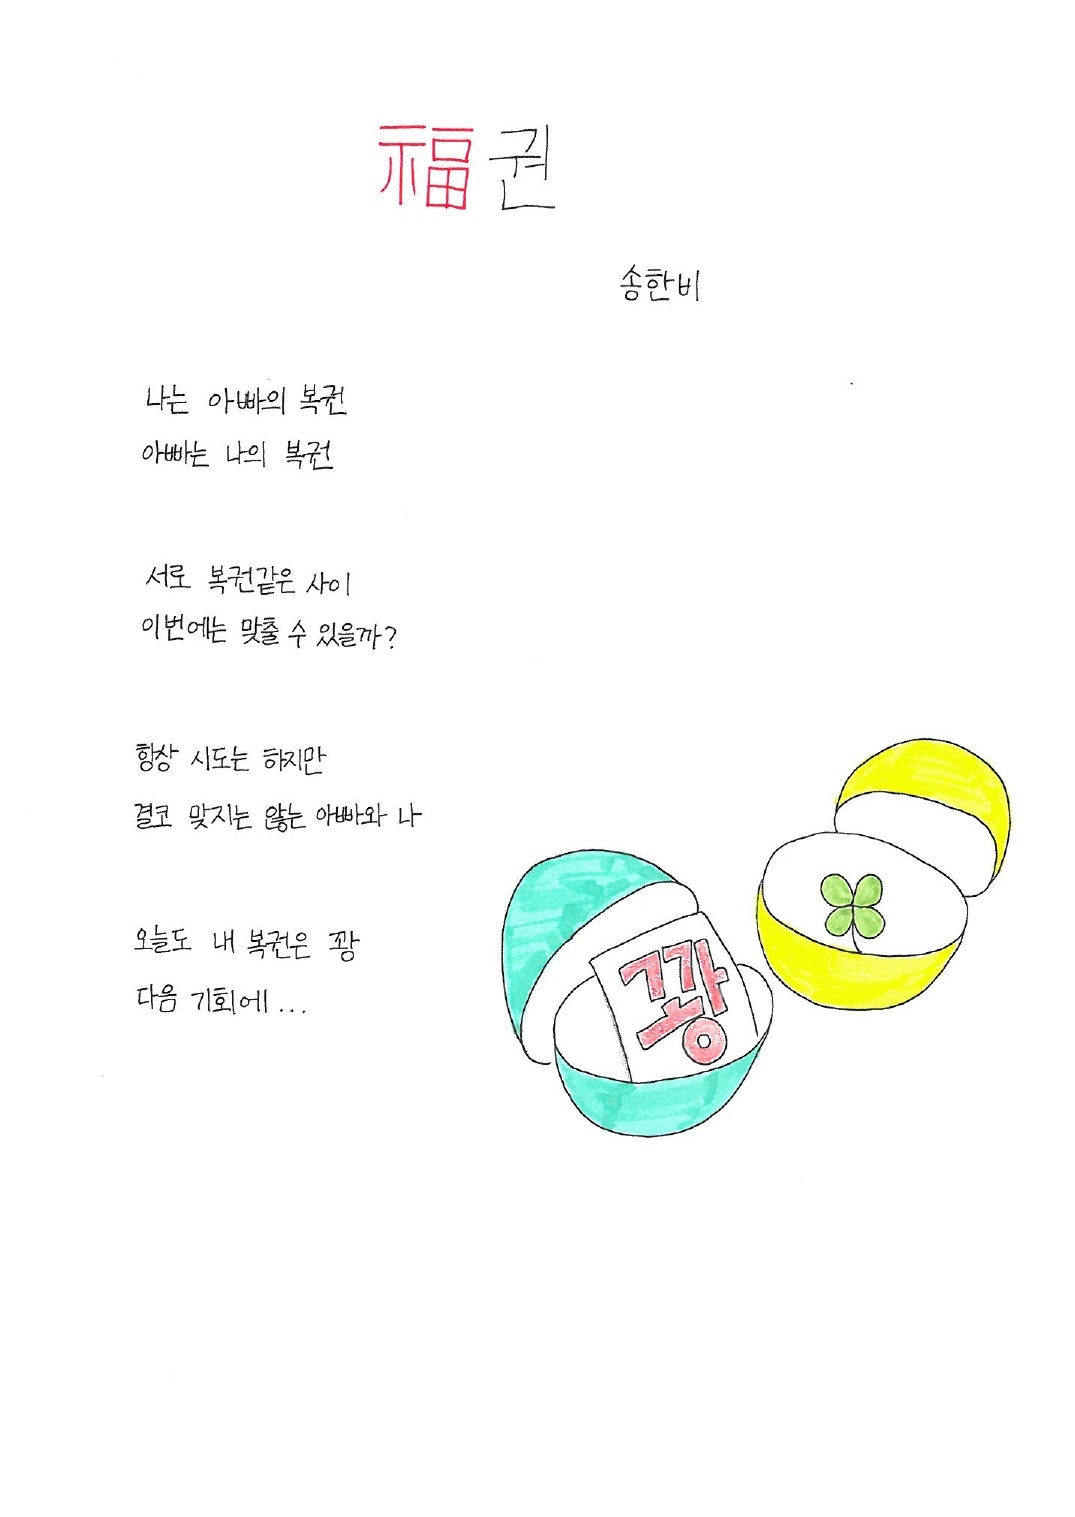 福권
송한비
나는 아빠의 복권
아빠는 나의 복권
서로 복권같은 사이
이번에는 맞출 수 있을까?
항상 시도는 하지만
결코 맞지는 않는 아빠와 나
오늘도 내 복권은 꽝
다음 기회에...
꽝